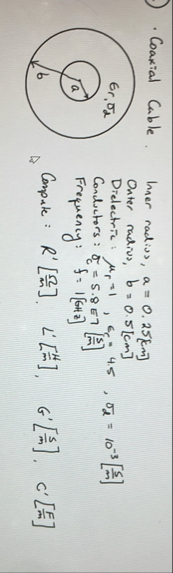 · Coaxial Cable.
Inner radius, a = 0.25 [cm]
Outer radius, b = 0.5 [cm]
Dielectric: μr = 1, εr = 4.5, σd = 10⁻³ [S/m]
Conductors: σc = 5.8E7 [S/m]
Frequency: f = 1 [GHz]
εr, σd
a
b
Compute: R' [Ω/m], L' [H/m], G' [S/m], C' [F/m]